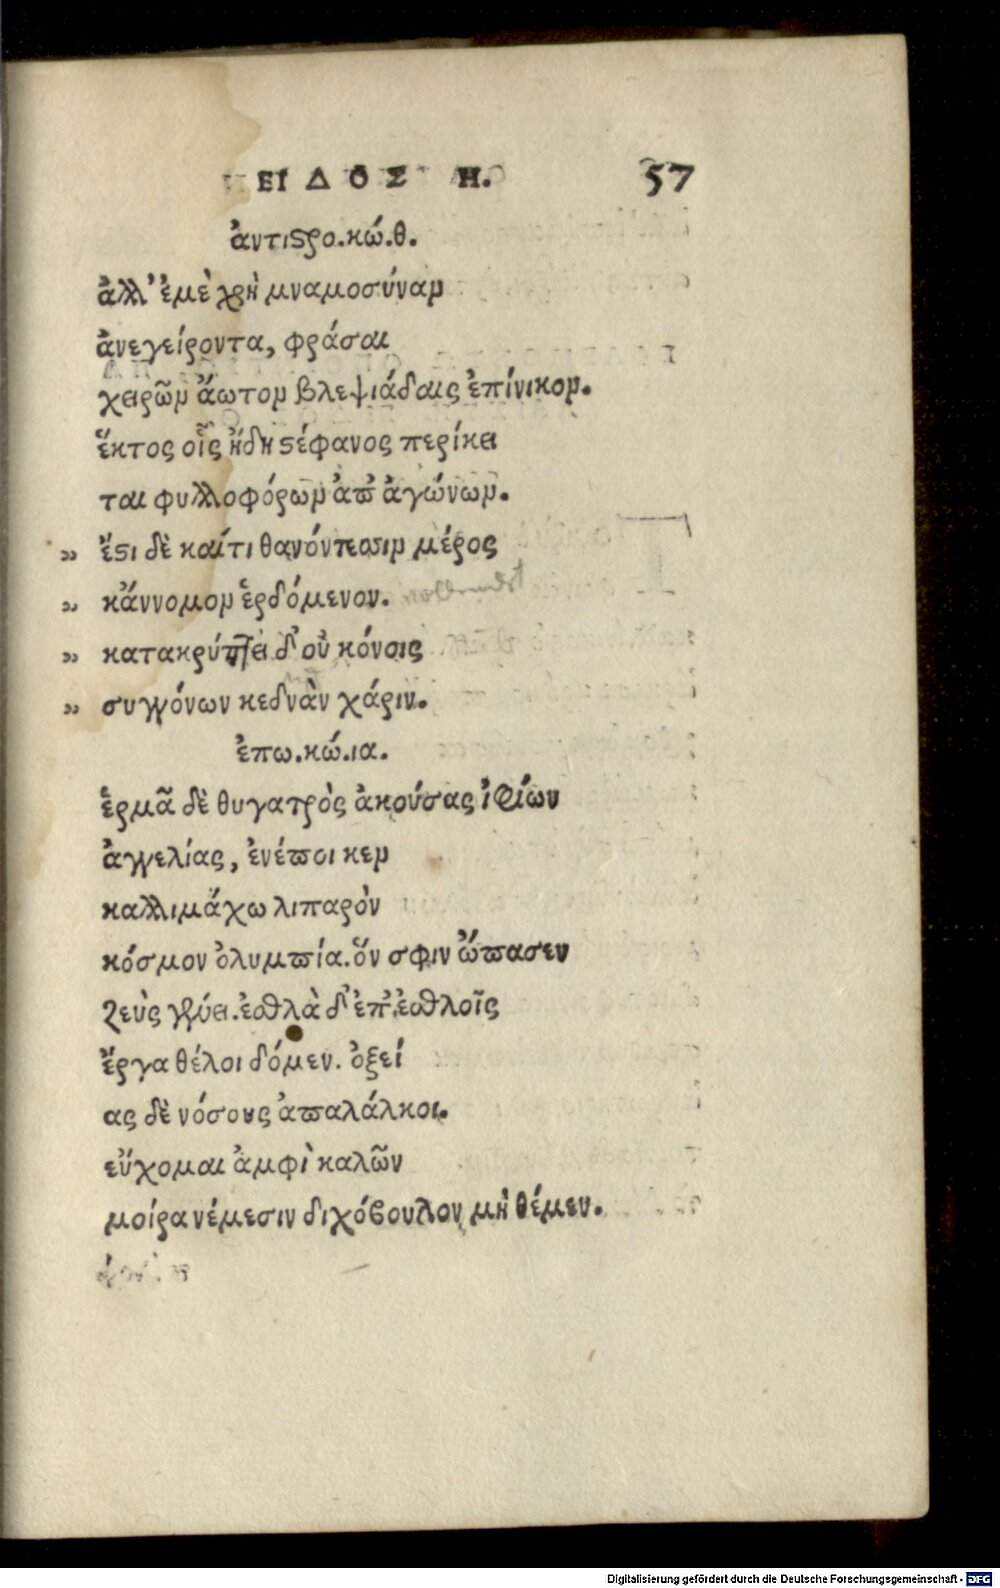 ΕΙΔΟΣ Η. 57
ἀντιστρο.κώ.θ.
ἀλλ' ἐμὲ χρὴ μναμοσύναν
ἀνεγείροντα, φράσαι
χειρῶν ἄωτον βλεψιάδαις ἐπίνικον.
ἕκτος οἷς ἤδη στέφανος περίκει
ται φυλλοφόρων ἀπ' ἀγώνων.
„ ἔστι δὲ καίτι θανόντεσσιν μέρος
„ κἄννομον ἑρδόμενον.
„ κατακρύπτει δ' οὐ κόνσις
„ συγγόνων κεδνὰν χάριν.
ἐπω.κώ.ια.
ἑρμᾶ δὲ θυγατρὸς ἀκούσας ἰφίων
ἀγγελίας, ἐνέποι κεν
καλλιμάχω λιπαρὸν
κόσμον ὀλυμπία. ὅν σφιν ὤπασεν
Ζεὺς γένει. ἐσθλὰ δ' ἐπ' ἐσθλοῖς
ἔργα θέλοι δόμεν. ὀξεί
ας δὲ νόσους ἀπαλάλκοι.
εὔχομαι ἀμφὶ καλῶν
μοίρα νέμεσιν διχόβουλον μὴ θέμεν.
Digitalisierung gefördert durch die Deutsche Forschungsgemeinschaft - DFG